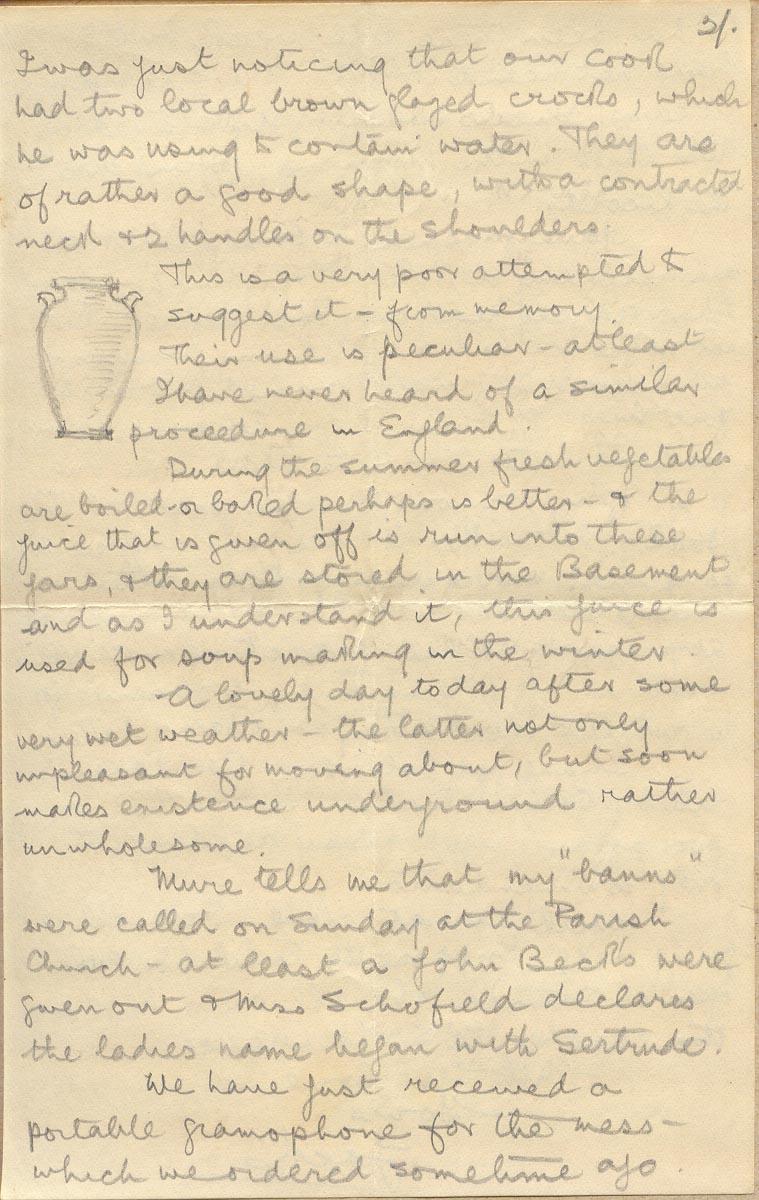 2/.
I was just noticing that our cook
had two local brown glazed crocks, which
he was using to contain water. They are
of rather a good shape, with a contracted
neck & 2 handles on the shoulders.
This is a very poor attempted to
suggest it - from memory.
Their use is peculiar - at least
I have never heard of a similar
proceedure in England.
During the summer fresh vegetables
are boiled - or baked perhaps is better - & the
juice that is given off is run into these
jars, & they are stored in the Basement
and as I understand it, this juice is
used for soup making in the winter.
A lovely day today after some
very wet weather - the latter not only
unpleasant for moving about, but soon
makes existence underground rather
unwholesome.
Mure tells me that my "banns"
were called on Sunday at the Parish
Church - at least a John Beck's were
given out & Miss Schofield declares
the ladies name began with Gertrude.
We have just received a
portable gramophone for the mess -
which we ordered sometime ago.